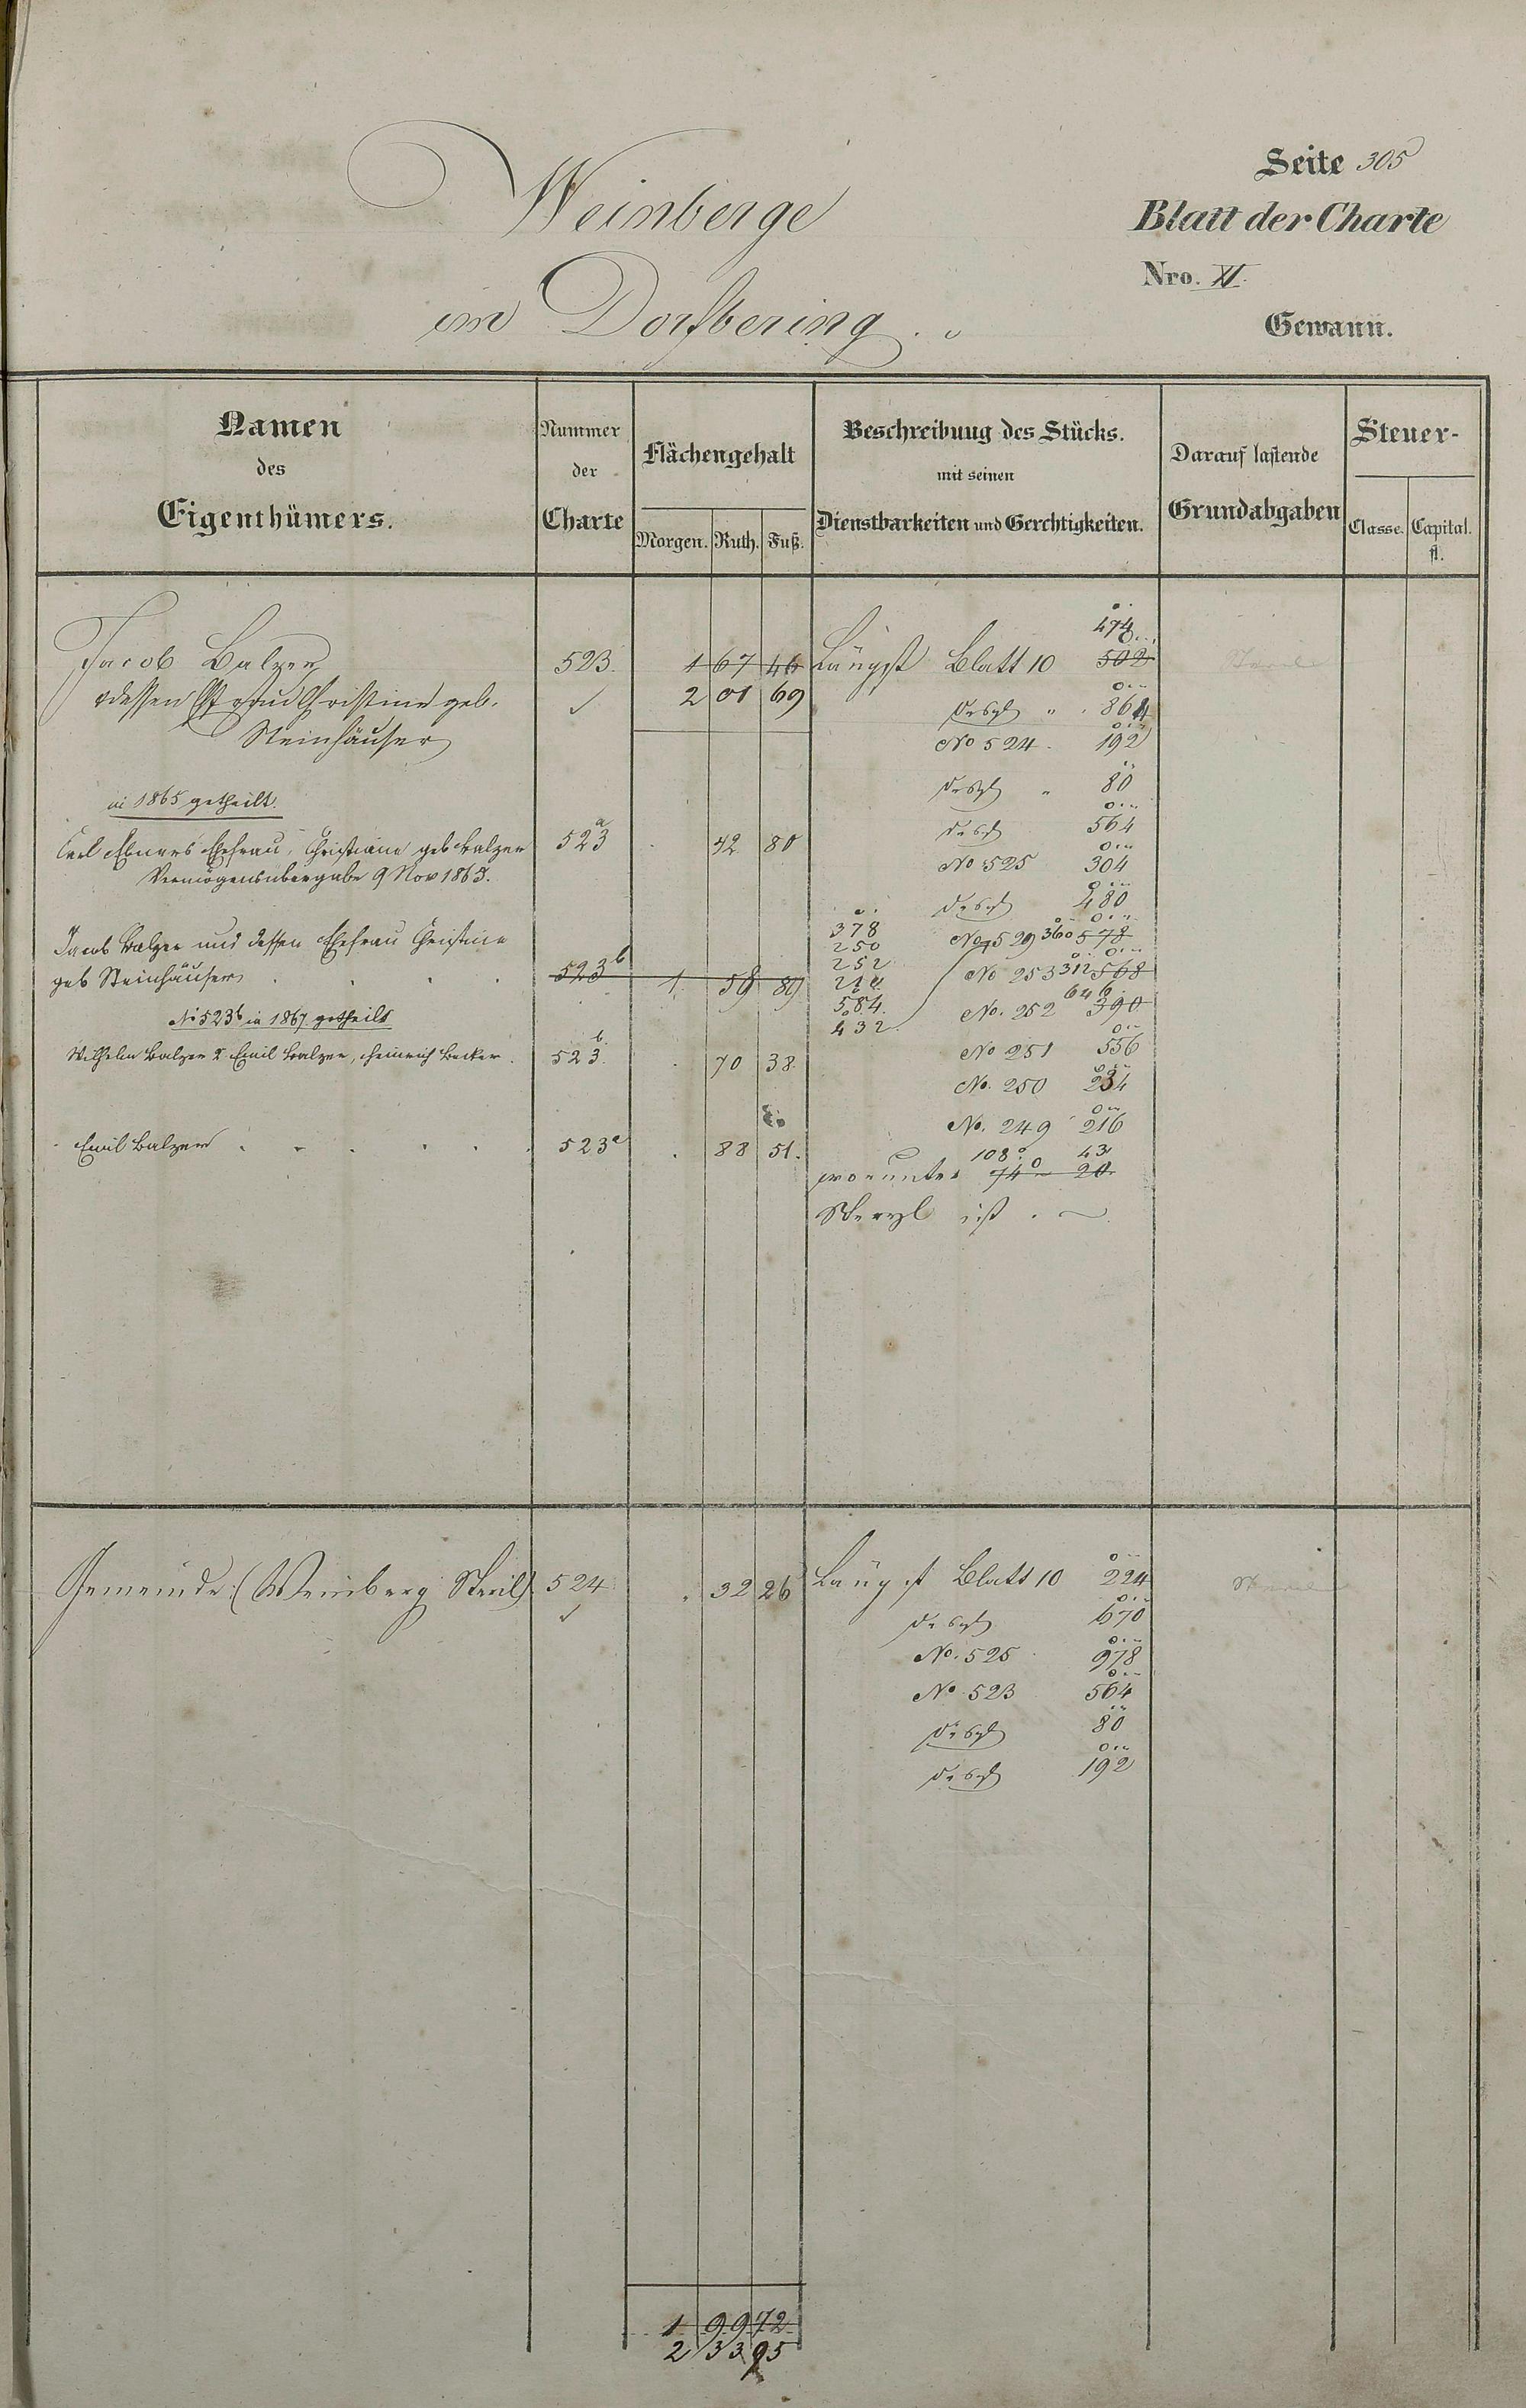 Seite 305
Weinberge
Blatt der Charte
Nro. XI.
im Dorfbering.
Gewann.
Namen des Eigenthümers.
Nummer der Charte
Flächengehalt
Morgen. Ruth. Fuß.
Beschreibung des Stücks.
mit seinen
Dienstbarkeiten und Gerechtigkeiten.
Darauf lastende
Grundabgaben
Steuer-
Classe. Capital.
fl.
474
Jacob Balzer 523. 1 67 46 Längst Blatt 10 502
dessen Ehefrau Christine geb. 2 01 69 desgl " 864
Steinhäuser No 524. 192
desgl " 80
in 1865 getheilt.
desgl 564
Carl Ebners Ehefrau, Christiane geb Balzer 523a 42 80
No 525 304
Vermögensübergabe 9 Nov 1865.
desgl 480
378
250 No 529 360 578
Jacob Balzer und dessen Ehefrau Christine
252 No 253 312 568
geb Steinhäuser 523b 1 58 89
584. No. 252 646 390
432
No 523b in 1867 getheilt
No 251 556
Wilhelm Balzer & Emil Balzer, Heinrich Becker. 523b. 70 38.
No. 250 234
No. 249 216
Emil Balzer 523a 88 51.
108 43
worunter 74 20
Steril ist.
Gemeinde (Weinberg Steril) 524 32 26 Längst Blatt 10 224
desgl 670
No. 525 978
No 523 564
desgl 80
desgl 192
1 99 72
2 33 95